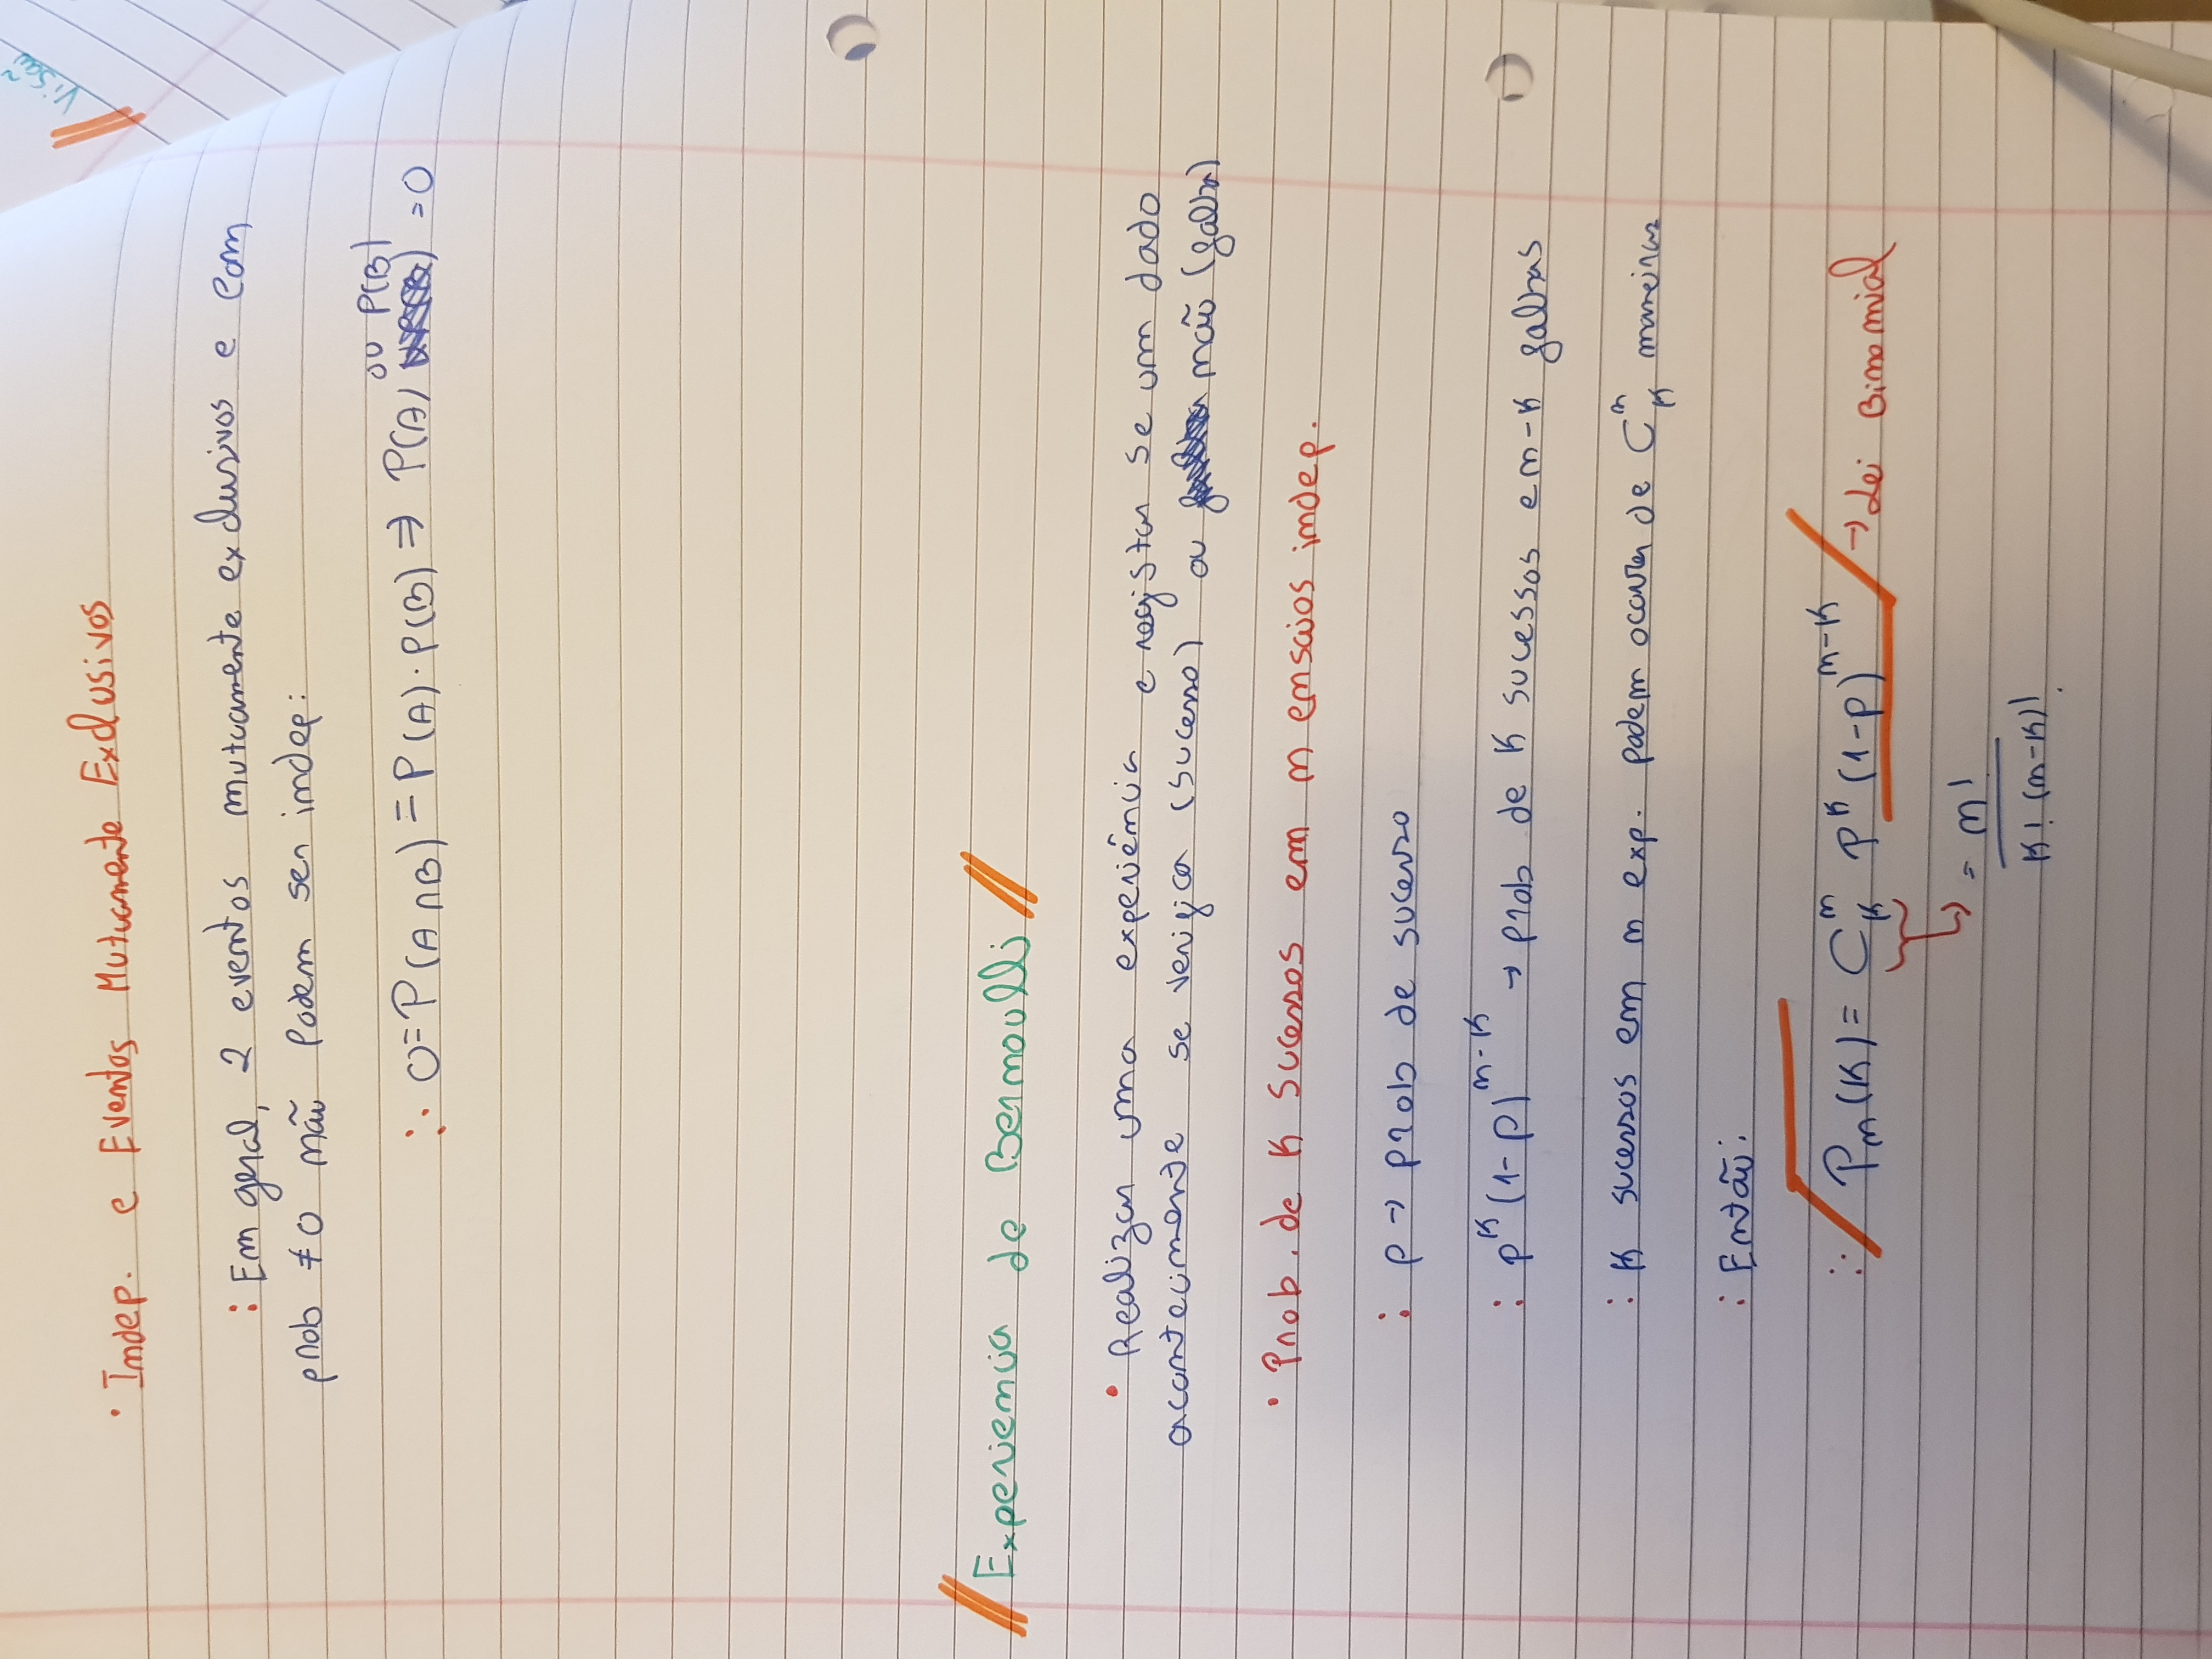 Visão
• Indep. e Eventos Mutuamente Exclusivos
: Em geral, 2 eventos mutuamente exclusivos e com
prob ≠ 0 não podem ser indep:
∴ 0 = P(A∩B) = P(A)·P(B) ⇒ P(A) ou P(B) = 0
// Experiencia de Bernoulli //
• Realizar uma experiência e registar se um dado
acontecimente se verifica (sucesso) ou não (falha)
• Prob. de K Sucessos em n ensaios indep.
: p → prob de sucesso
: p^K (1-p)^{n-K} → prob de K sucessos e n-K falhas
: K sucessos em n exp. podem ocorrer de C^n_K maneiras
: Então:
∴ P_n(K) = C^n_K p^K (1-p)^{n-K} → Lei Binomial
= n! / K! (n-K)!